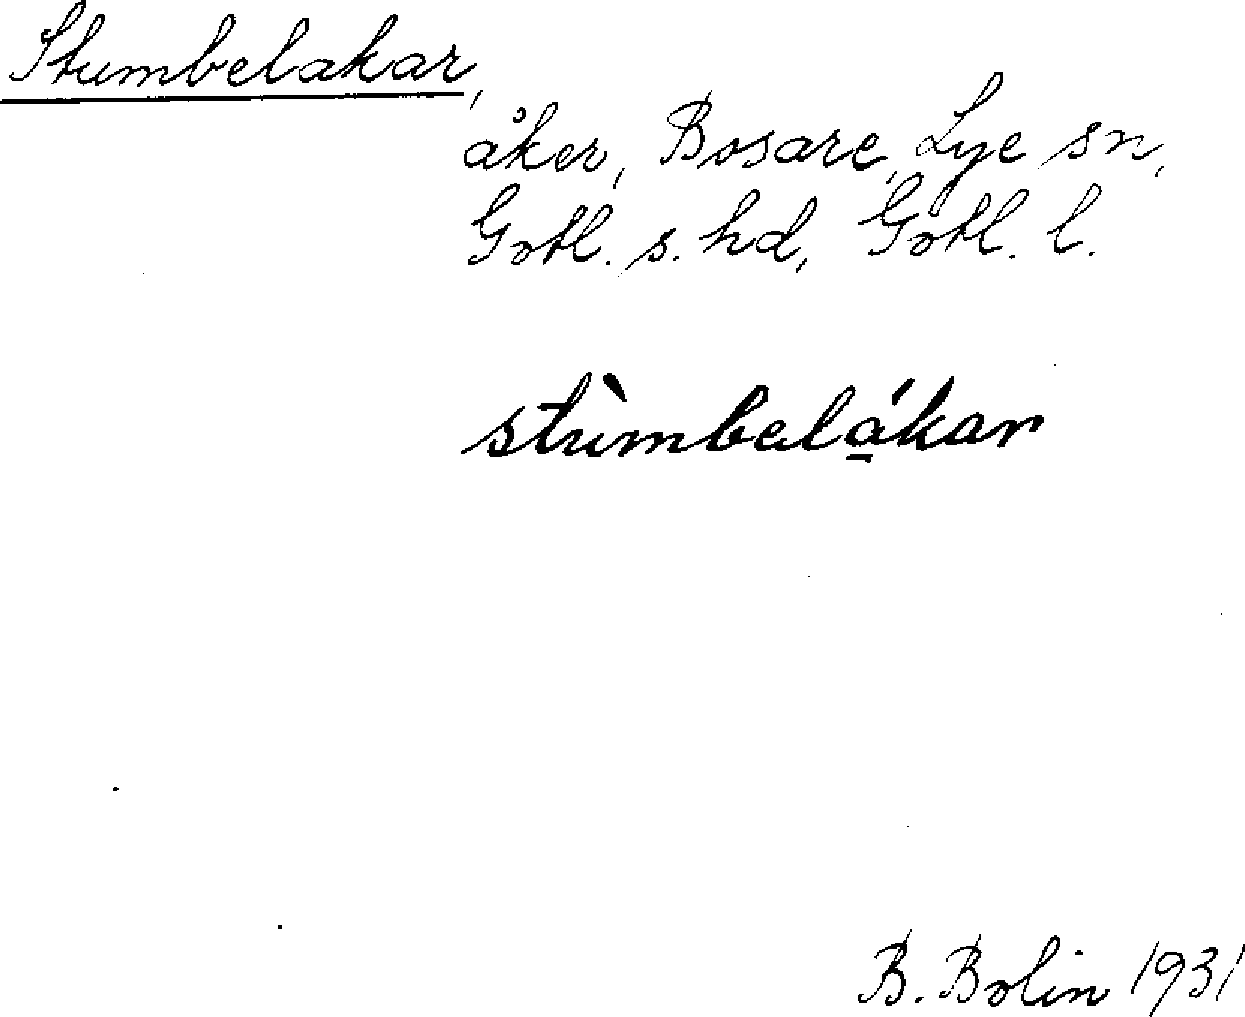 Stumbelakar,
åker, Bosare, Lye sn,
Gotl. s. hd, Gotl. l.
stùmbelá̱kar
B. Bolin 1931